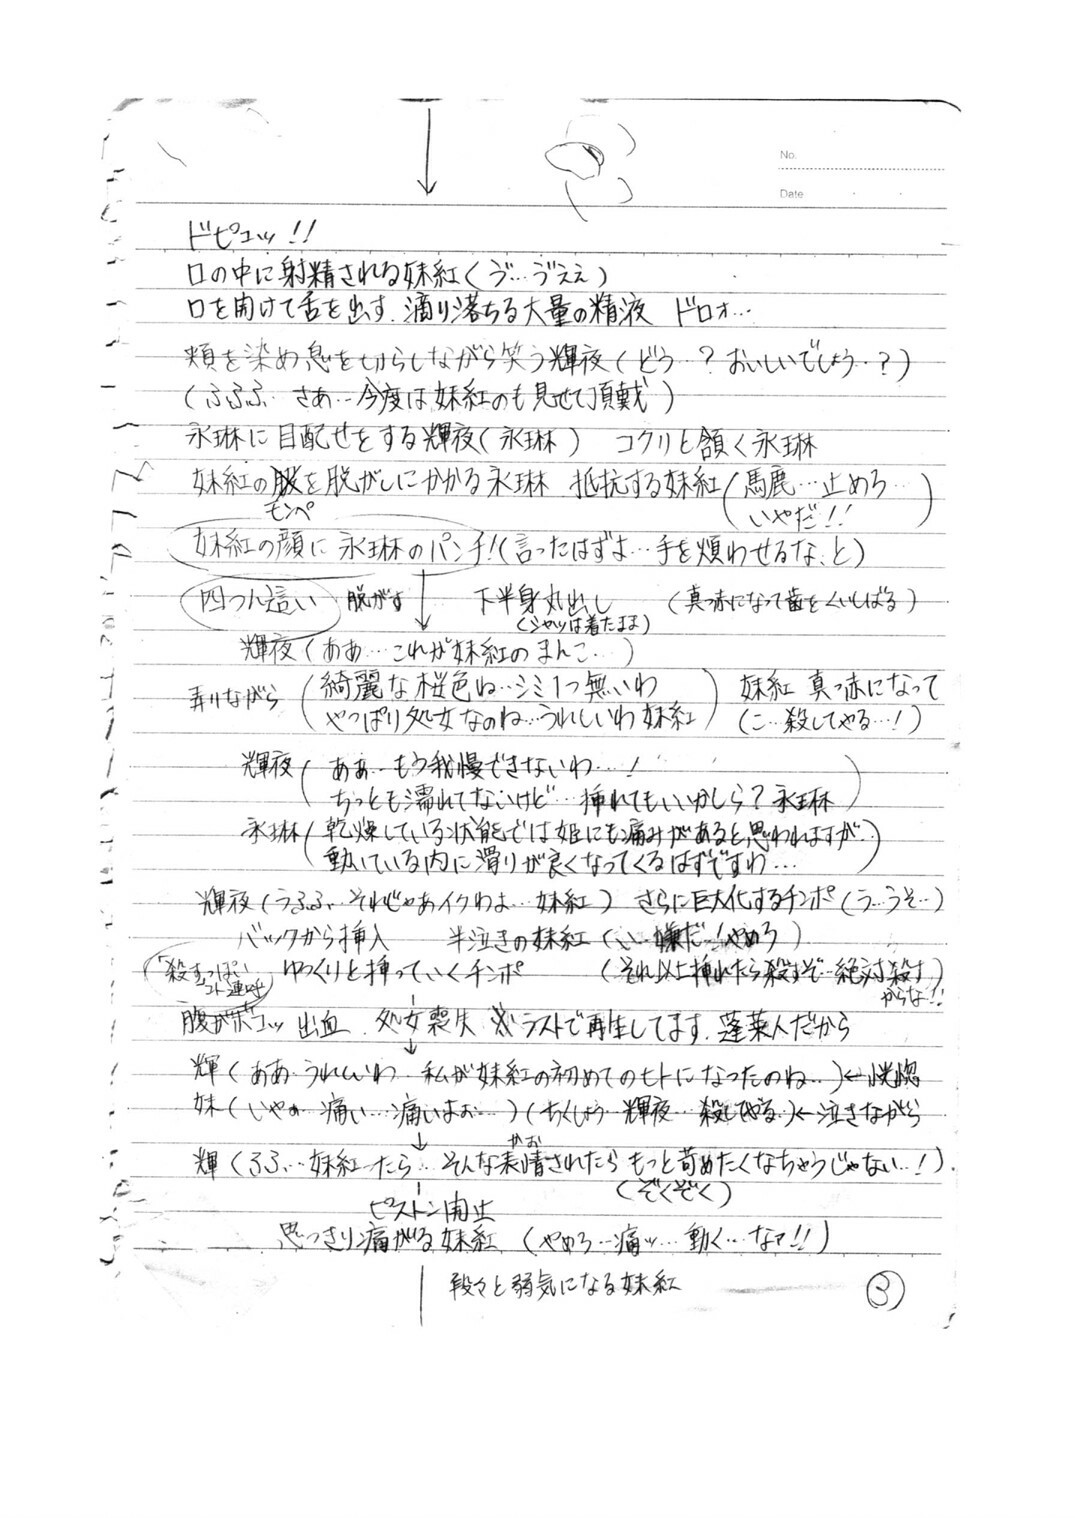 No.
Date
ドピュッ!!
口の中に射精される妹紅(ゔ…ゔえぇ)
口を開けて舌を出す.滴り落ちる大量の精液 ドロォ…
頬を染め息を切らしながら笑う輝夜(どう…?おいしいでしょう…?)
(ふふふ…さあ…今度は妹紅のも見せて頂戴)
永琳に目配せをする輝夜(永琳) コクリと頷く永琳
妹紅の服を脱がしにかかる永琳 抵抗する妹紅(馬鹿…止めろ…
モンペ いやだ!!)
妹紅の顔に永琳のパンチ!(言ったはずよ…手を煩わせるな、と)
四つん這い 脱がす 下半身丸出し (真っ赤になって歯をくいしばる)
(シャツは着たまま)
輝夜(ああ…これが妹紅のまんこ…)
弄りながら (綺麗な桜色ね…シミ1つ無いわ 妹紅 真っ赤になって
やっぱり処女なのね…うれしいわ妹紅) (こ…殺してやる…!)
輝夜(ああ…もう我慢できないわ…!
ちっとも濡れてないけど…挿れてもいいかしら?永琳)
永琳(乾燥している状態では姫にも痛みがあると思われますが…
動いている内に滑りが良くなってくるはずですわ…)
輝夜(うふふ…それじゃあイクわよ…妹紅) さらに巨大化するチンポ(う…うそ…)
バックから挿入 半泣きの妹紅(い…嫌だ!やめろ)
「殺すっぽい ゆっくりと挿っていくチンポ (それ以上挿れたら殺すぞ…絶対殺す
コト連呼 からな!!)
腹がボコッ 出血 処女喪失 ※ラストで再生してます.蓬莱人だから
輝(ああ…うれしいわ…私が妹紅の初めてのヒトになったのね…)←恍惚
妹(いやぁ…痛い…痛いよぉ…)(ちくしょう…輝夜…殺してやる…)←泣きながら
かお
輝(ふふ…妹紅ったら…そんな表情されたらもっと苛めたくなちゃうじゃない…!)
(ぞくぞく)
ピストン開始
思っきり痛がる妹紅 (やめろ…痛ッ…動く…なァ!!)
段々と弱気になる妹紅
3